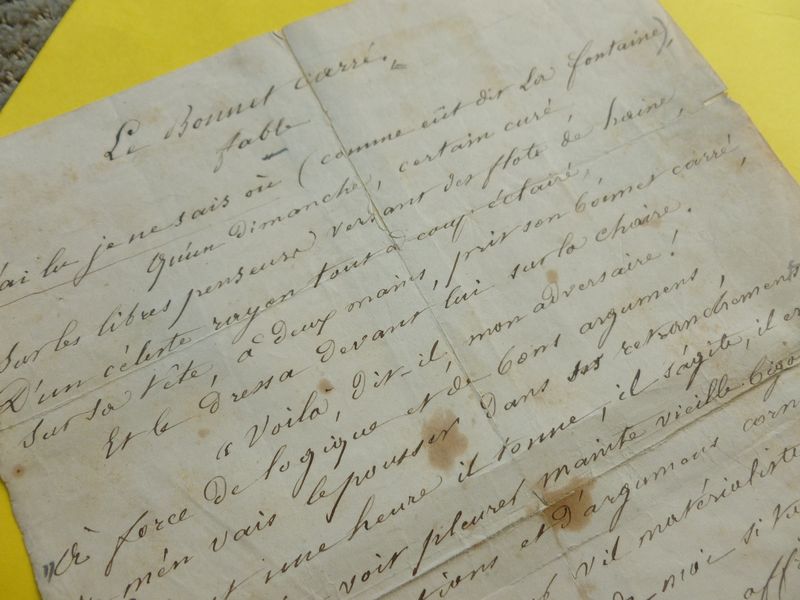 Le Bonnet carré.
fable
ai lu je ne sais où (comme eût dit La fontaine),
Qu'un dimanche, certain curé,
Sur les libres penseurs versant des flots de haine,
D'un céleste rayon tout à coup éclairé,
Sur sa tête, à deux mains, prit son bonnet carré,
Et le dressa devant lui sur la chaire.
"Voilà, dit-il, mon adversaire!
"À force de logique et de bons argumens,
m'en vais le pousser dans ses retranchements
une heure il tonne, il s'agite, il
voit pleurer mainte vieille
et d'argumens
vil matérialiste
moi si